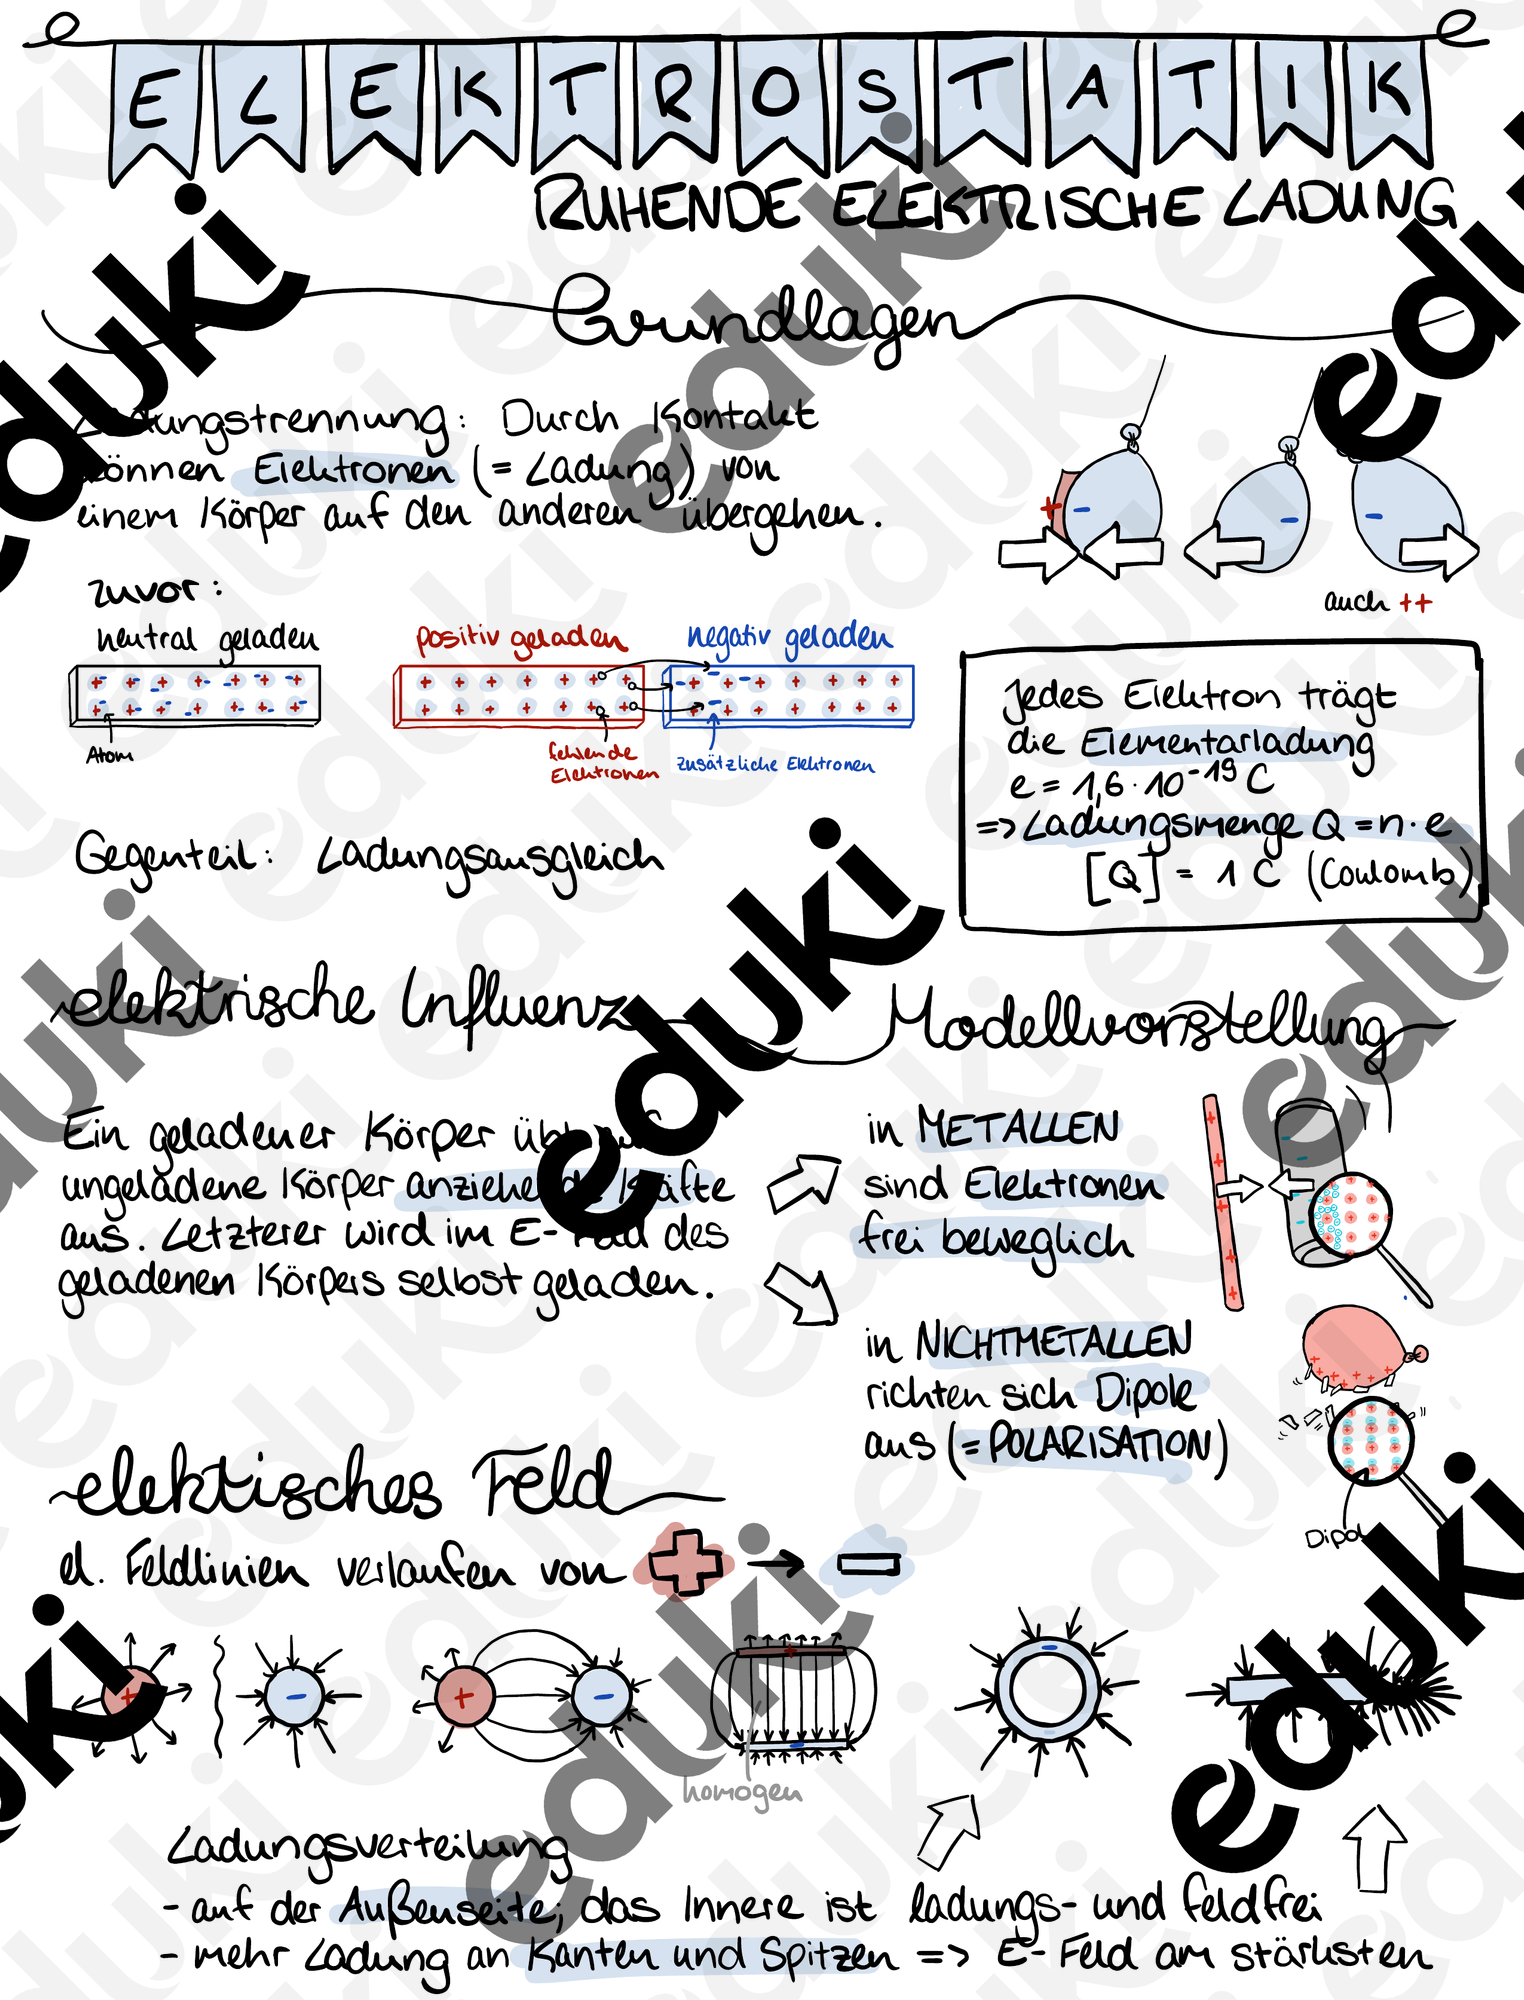 ELEKTROSTATIK
RUHENDE ELEKTRISCHE LADUNG
Grundlagen
Ladungstrennung: Durch Kontakt
können Elektronen (= Ladung) von
einem Körper auf den anderen übergehen.
+ - - -
auch ++
zuvor:
neutral geladen
positiv geladen
negativ geladen
Atom
fehlende
Elektronen
zusätzliche Elektronen
Jedes Elektron trägt
die Elementarladung
e = 1,6 · 10⁻¹⁹ C
=> Ladungsmenge Q = n · e
[Q] = 1 C (Coulomb)
Gegenteil: Ladungsausgleich
elektrische Influenz
Modellvorstellung
Ein geladener Körper übt auf
ungeladene Körper anziehende Kräfte
aus. Letzterer wird im E-Feld des
geladenen Körpers selbst geladen.
in METALLEN
sind Elektronen
frei beweglich
in NICHTMETALLEN
richten sich Dipole
aus (= POLARISATION)
Dipol
elektisches Feld
el. Feldlinien verlaufen von + → -
homogen
Ladungsverteilung
- auf der Außenseite; das Innere ist ladungs- und feldfrei
- mehr Ladung an Kanten und Spitzen => E-Feld am stärksten
eduki
eduki
eduki
eduki
eduki
eduki
eduki
eduki
eduki
eduki